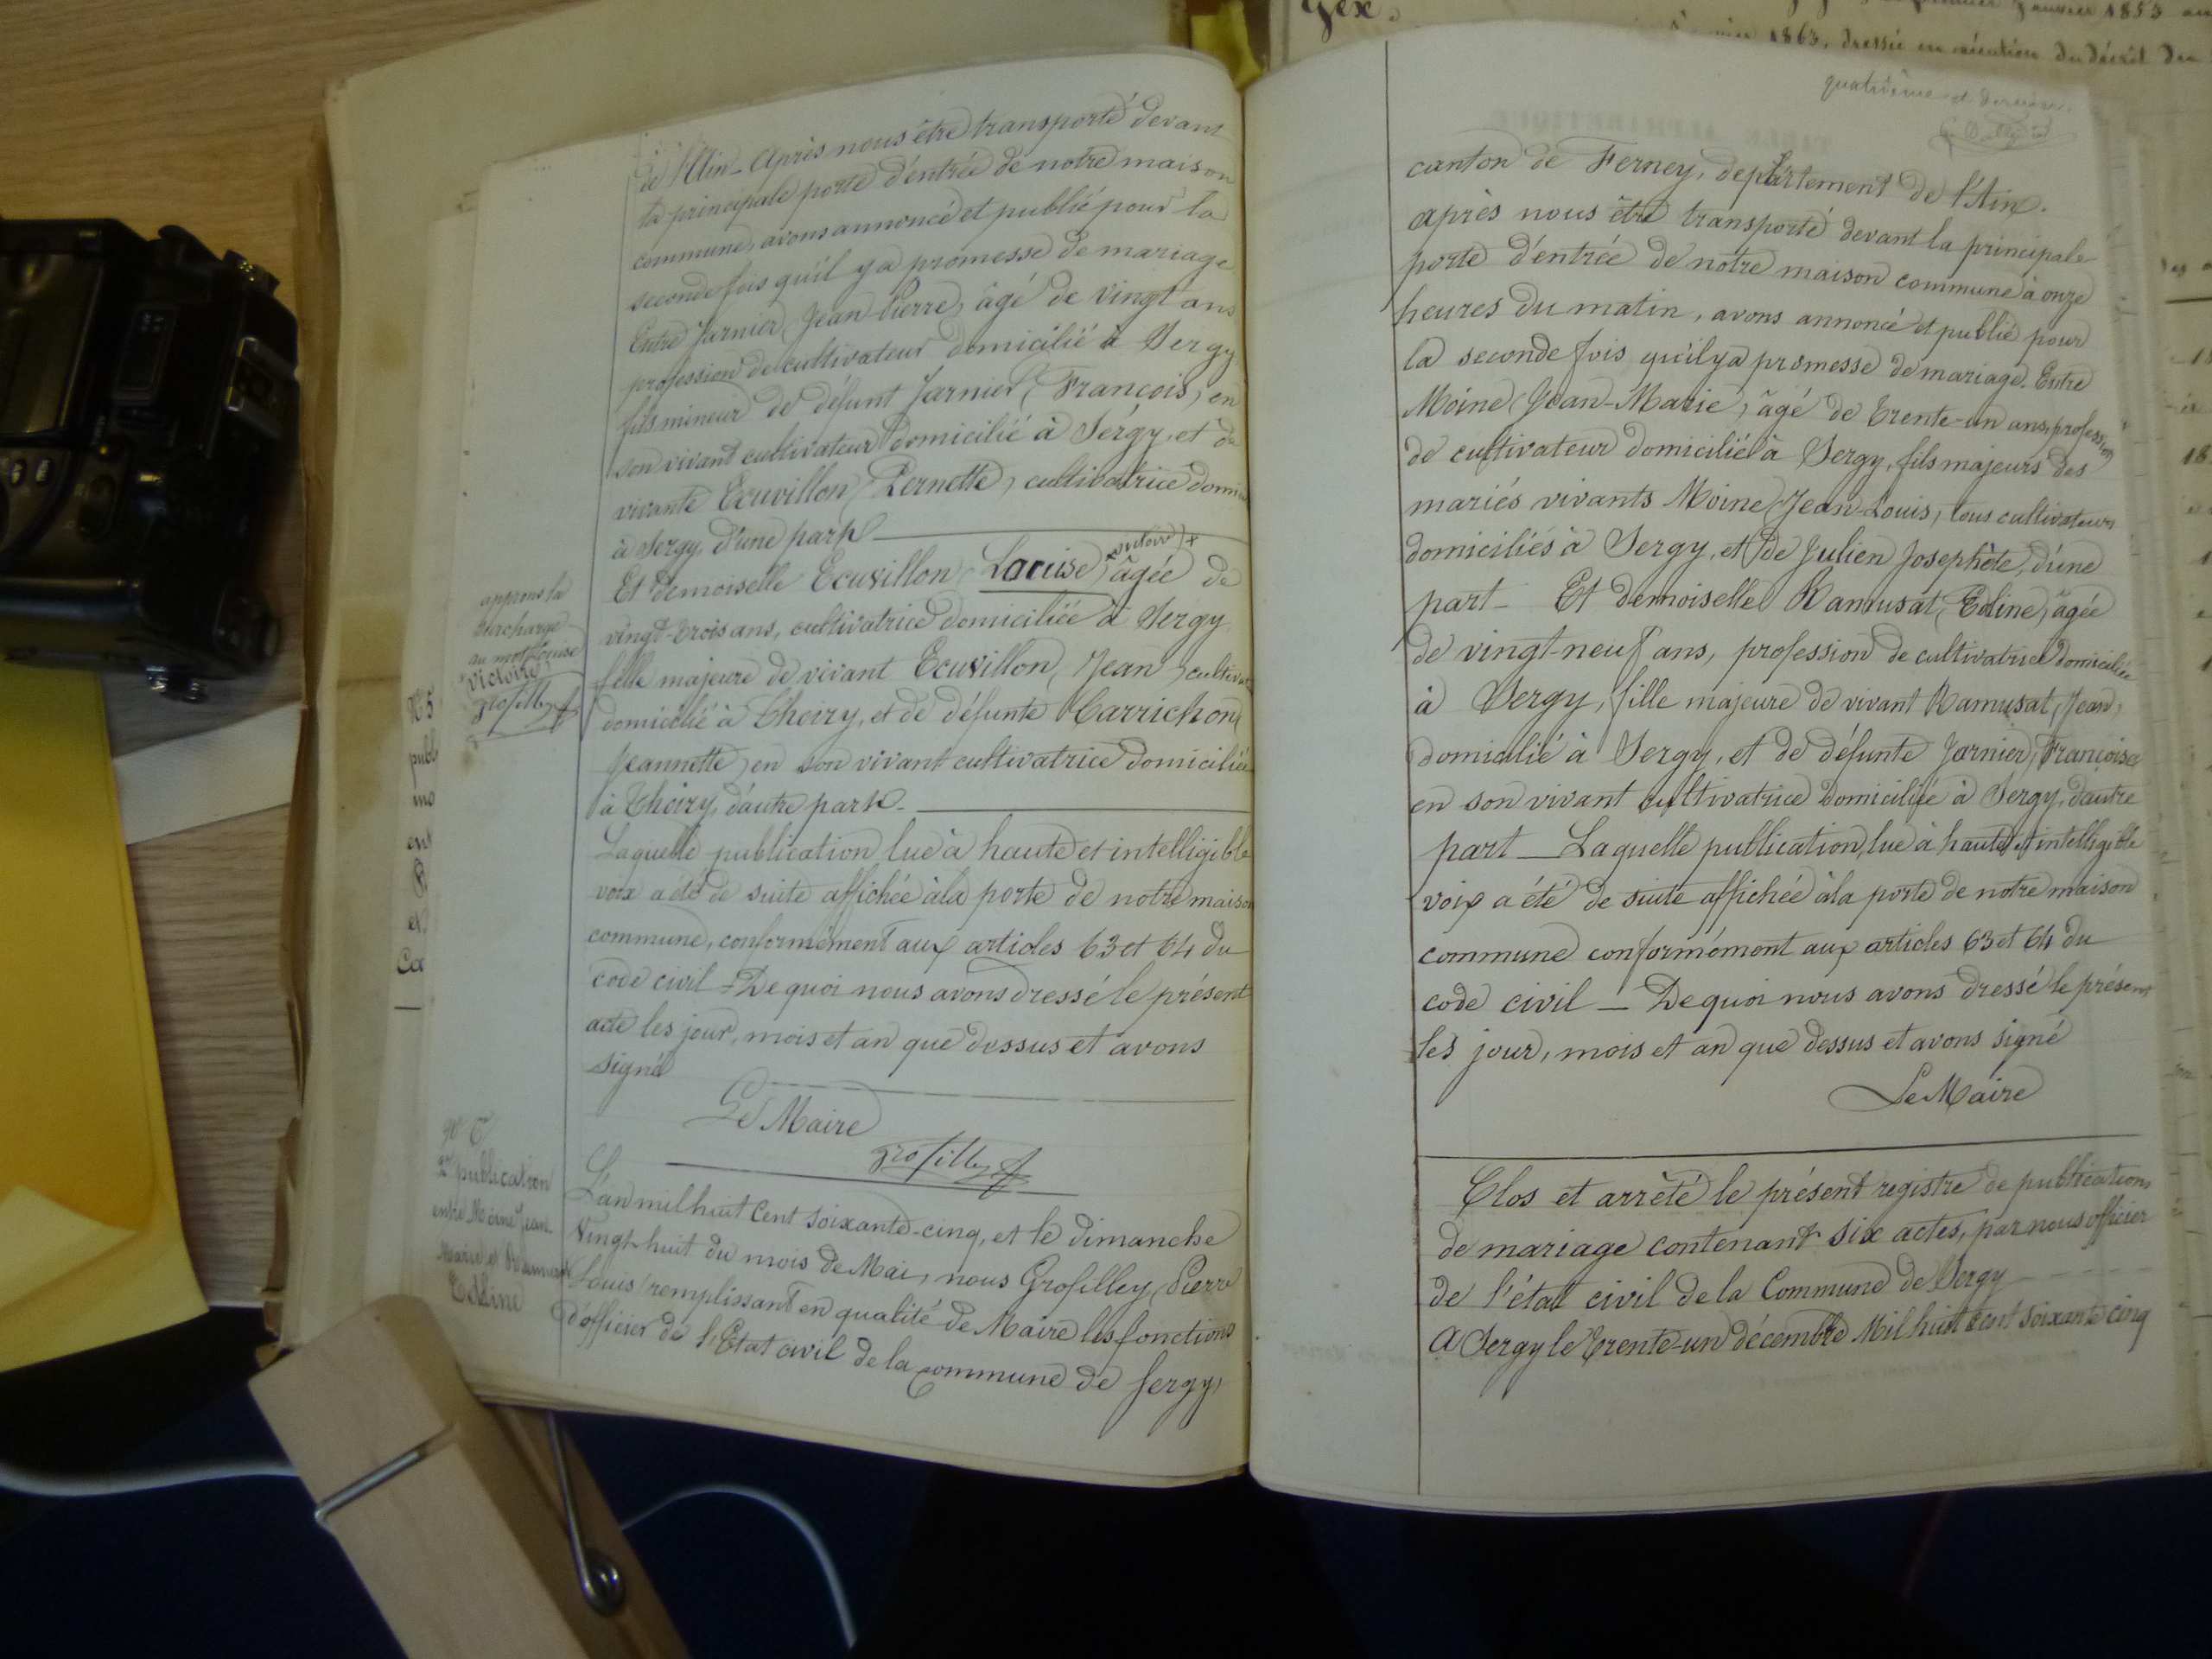 de l'Ain _ Après nous être transporté devant
la principale porte d'entrée de notre maison
commune, avons annoncé et publié pour la
seconde fois qu'il y a promesse de mariage
Entre Jarnier (Jean-Pierre) âgé de vingt ans
profession de cultivateur domicilié à Sergy
fils mineur de défunt Jarnier (François) en
son vivant cultivateur domicilié à Sergy, et de
vivante Ecuvillon (Pernette) cultivatrice domici
à Sergy, d'une part
victoire) +
Et demoiselle Ecuvillon (Louise) âgée de
vingt-trois ans, cultivatrice domiciliée à Sergy
fille majeure de vivant Ecuvillon (Jean) cultivat
domicilié à Thoiry, et de défunte Carrichon (
Jeannette) en son vivant cultivatrice domiciliée
à Thoiry, d'autre part.
Laquelle publication lue à haute et intelligible
voix a été de suite affichée à la porte de notre maison
commune, conformément aux articles 63 et 64 du
code civil - De quoi nous avons dressé le présent
acte les jour, mois et an que dessus et avons
signé
Le Maire
Grosfilley
approuvé la
surcharge
au mot Louise
victoire
Grosfilley
N° 5
publ
mo
ent
et
Ca
2e publication
entre Moine Jean
Marie et Ramusat
Edline
L'an mil huit cent soixante-cinq, et le dimanche
Vingt-huit du mois de Mai, nous Grosfilley (Pierre
Louis) remplissant en qualité de Maire les fonctions
d'officier de l'Etat civil de la commune de Sergy,
Gex.
janvier 1853 au
1863, dressée en exécution du décret du
quatrième et dernier
canton de Ferney, département de l'Ain.
après nous être transporté devant la principale
porte d'entrée de notre maison commune à onze
heures du matin, avons annoncé et publié pour
la seconde fois qu'il y a promesse de mariage. Entre
Moine (Jean-Marie) âgé de trente-un ans, profession
de cultivateur domicilié à Sergy, fils majeurs des
mariés vivants Moine (Jean-Louis) tous cultivateurs
domiciliés à Sergy, et de Julien Josephète, d'une
part _ Et demoiselle Ramusat (Edline) âgée
de vingt-neuf ans, profession de cultivatrice domiciliée
à Sergy, fille majeure de vivant Ramusat (Jean)
domicilié à Sergy, et de défunte Jarnier (Françoise
en son vivant cultivatrice domiciliée à Sergy, d'autre
part _ Laquelle publication, lue à haute et intelligible
voix a été de suite affichée à la porte de notre maison
commune conformément aux articles 63 et 64 du
code civil _ De quoi nous avons dressé le présent
les jour, mois et an que dessus et avons signé
Le Maire
Clos et arrêté le présent registre de publications
de mariage contenant six actes, par nous officier
de l'état civil de la Commune de Sergy
A Sergy le trente-un décembre Mil huit cent soixante cinq